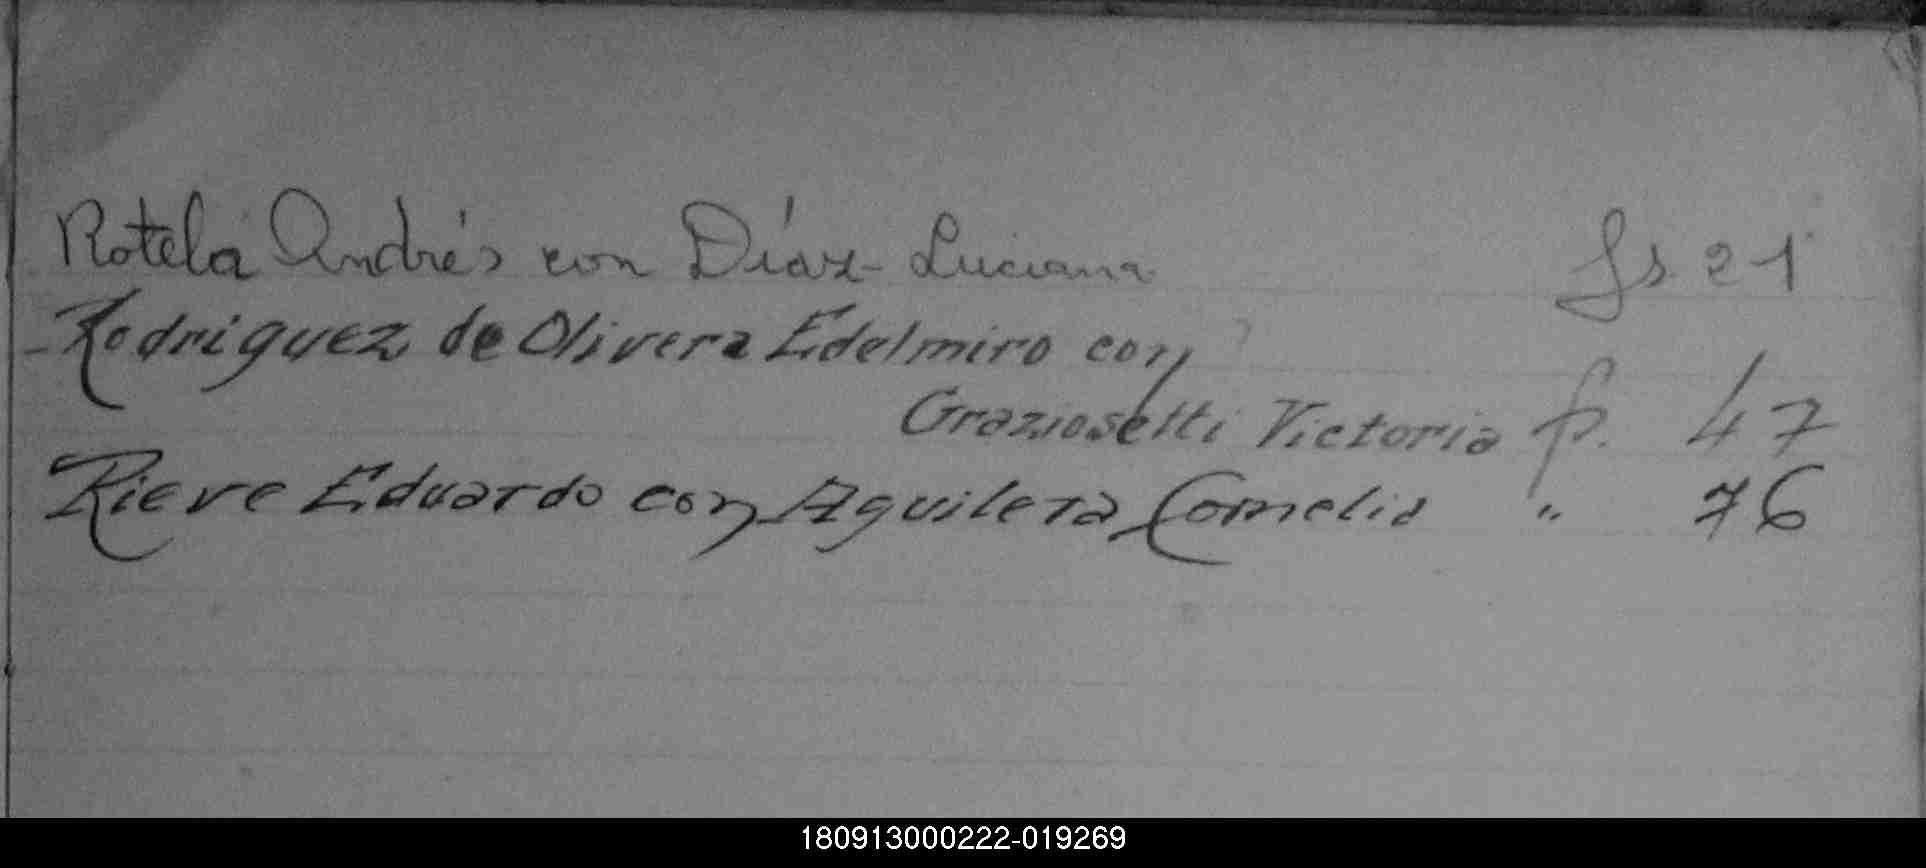 Rotela Andrés con Díaz Luciana fs 21
Rodriguez de Olivera Edelmiro con
Graziosetti Victoria f. 47
Rieve Eduardo con Aguilera Cornelia " 76
180913000222-019269